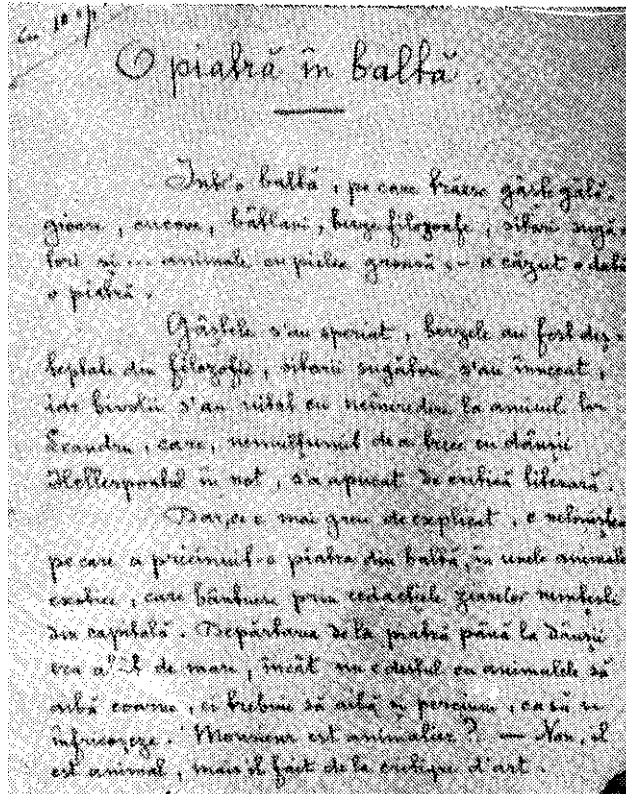 cu 10 p.
O piatră în baltă.
Intr'o baltă, pe care trăesc gâște gălă-
gioase, cucove, bâtlani, berze filozoafe, sitari sugă-
tori și ... animale cu pielea groasă, — a căzut o dată
o piatră.
Gâștele s'au speriat, berzele au fost deș-
teptate din filozofie, sitarii sugători s'au înnecat,
iar bivolii s'au uitat cu neîncredere la amicul lor
Leandru, care, nemulțumit de a trece cu dânșii
Hellespontul în not, s'a apucat de critică literară.
Dar, ce e mai greu de explicat, e neliniștea
pe care a pricinuit-o piatra din baltă, în unele animale
exotice, care bântuesc prin redacțiile ziarelor nemțești
din capitală. Depărtarea de la piatră până la dânșii
era atât de mare, încât nu e destul ca animalele să
aibă coarne, ci trebuie să aibă și perciuni, ca să se
înfricoșeze. "Monsieur est animalier? — Non, il
est animal, mais il fait de la critique d'art.